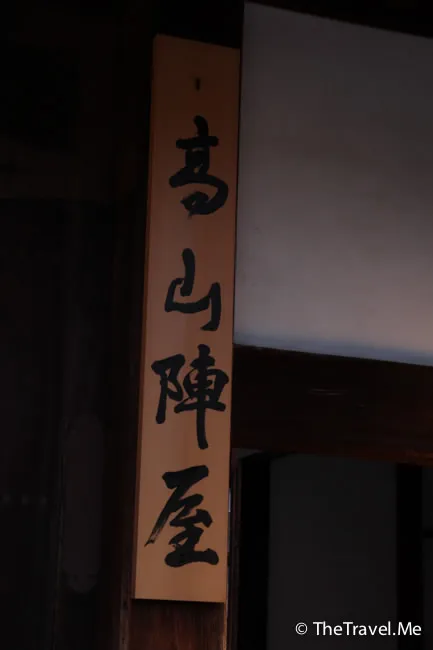 高山陣屋
© TheTravel.Me